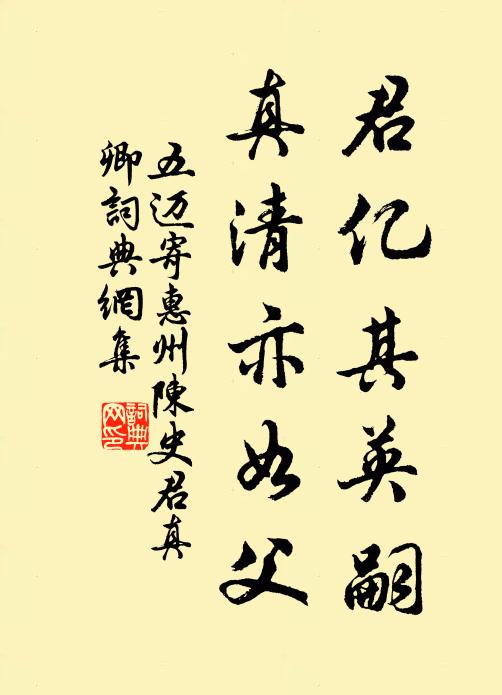 君亿其英嗣
真清亦如父
五迈寄惠州陳史君真
卿詞典網集
詞典网印